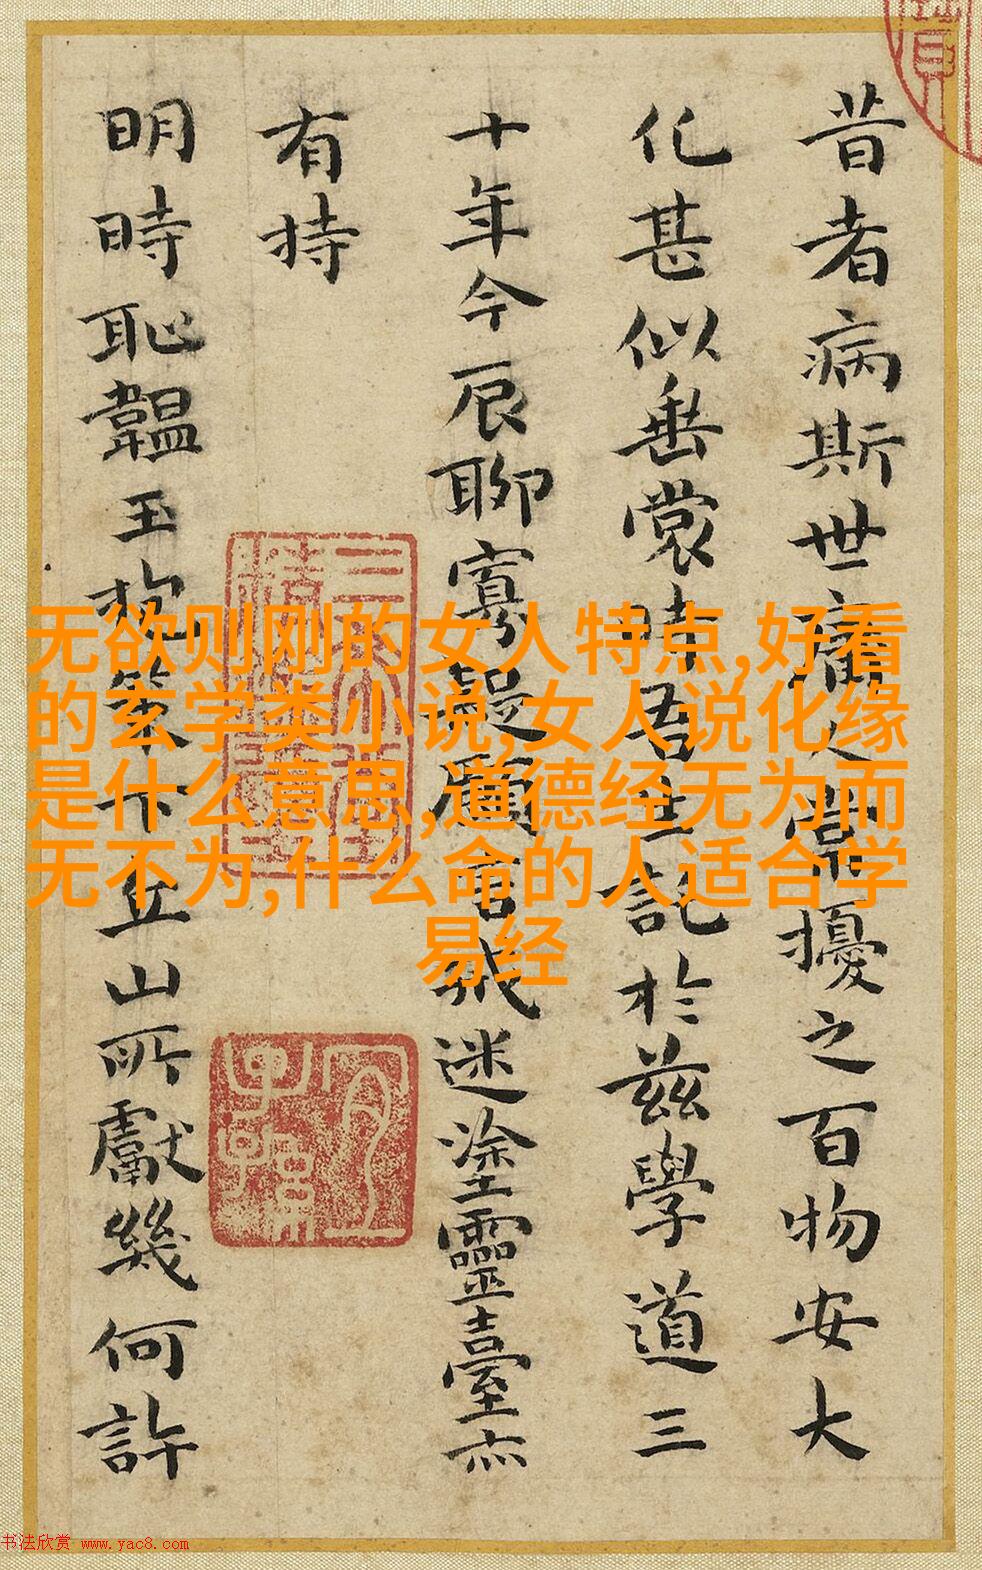 昔者病斯世擾之百物安大
化甚似垂裳時吾生託於茲學道三
十年今辰聊寡疑願言迷塗靈臺亦
有持
明時恥韞玉抱策下丘山所獻幾何許
无欲则刚的女人特点,好看
的玄学类小说,女人说化缘
是什么意思,道德经无为而
无不为,什么命的人适合学
易经
书法欣赏 www.yac8.com